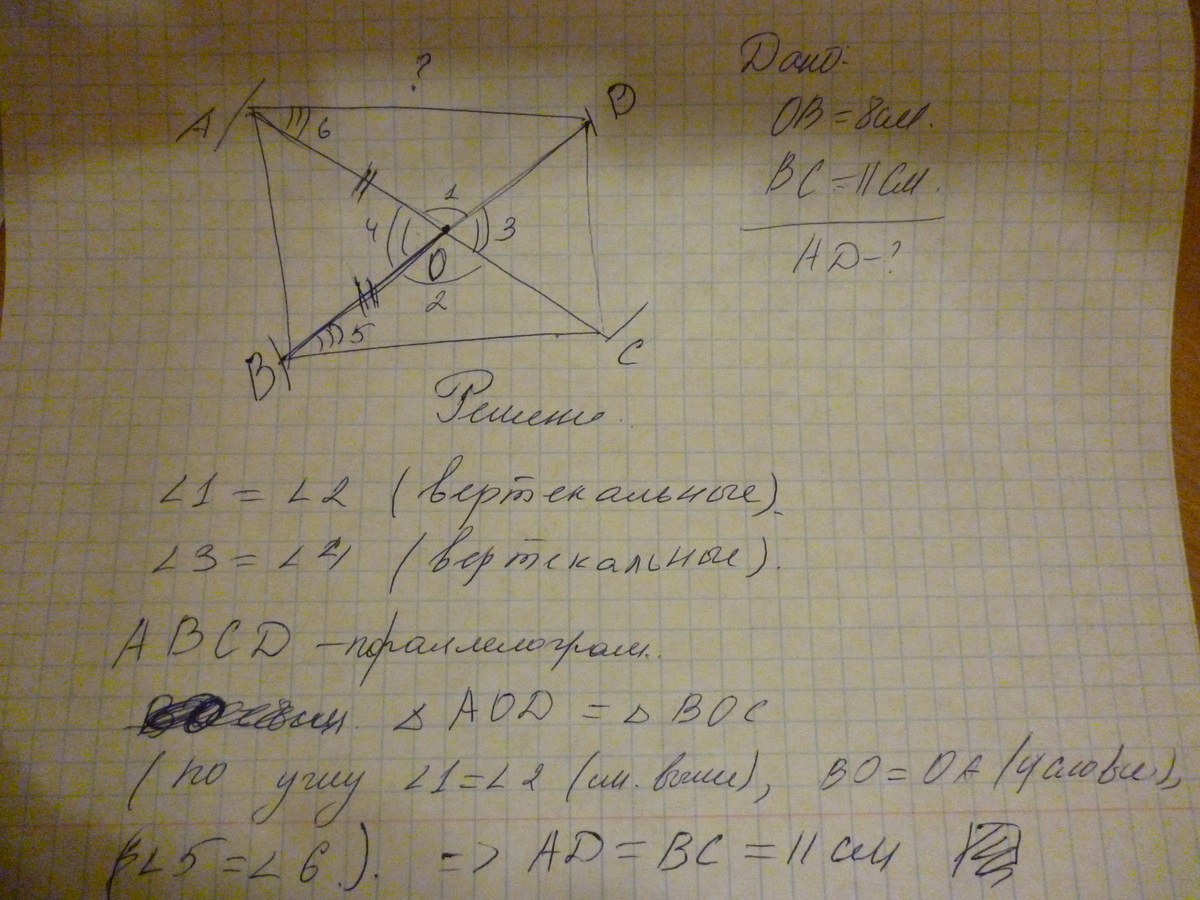 ?
Дано:
A 6 B
OB=8см.
BC=11см.
1
4 3
AD-?
O
2
5
B C
Решение.
∠1 = ∠2 (вертекальные).
∠3 = ∠4 (вертекальные).
ABCD - параллелограм.
△ AOD = △ BOC
(по углу ∠1=∠2 (см. выше), BO=OA (условие),
∠5=∠6). => AD=BC=11см